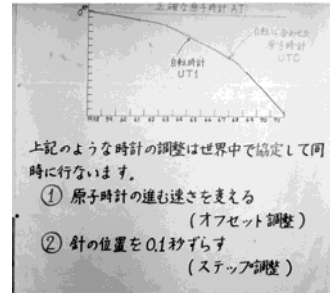 正確な原子時計 AT
自転時計
UT1
自転に合わせた
原子時計
UTC
上記のような時計の調整は世界中で協定して同
時に行ないます。
① 原子時計の進む速さを変える
(オフセット調整)
② 針の位置を0.1秒ずらす
(ステップ調整)